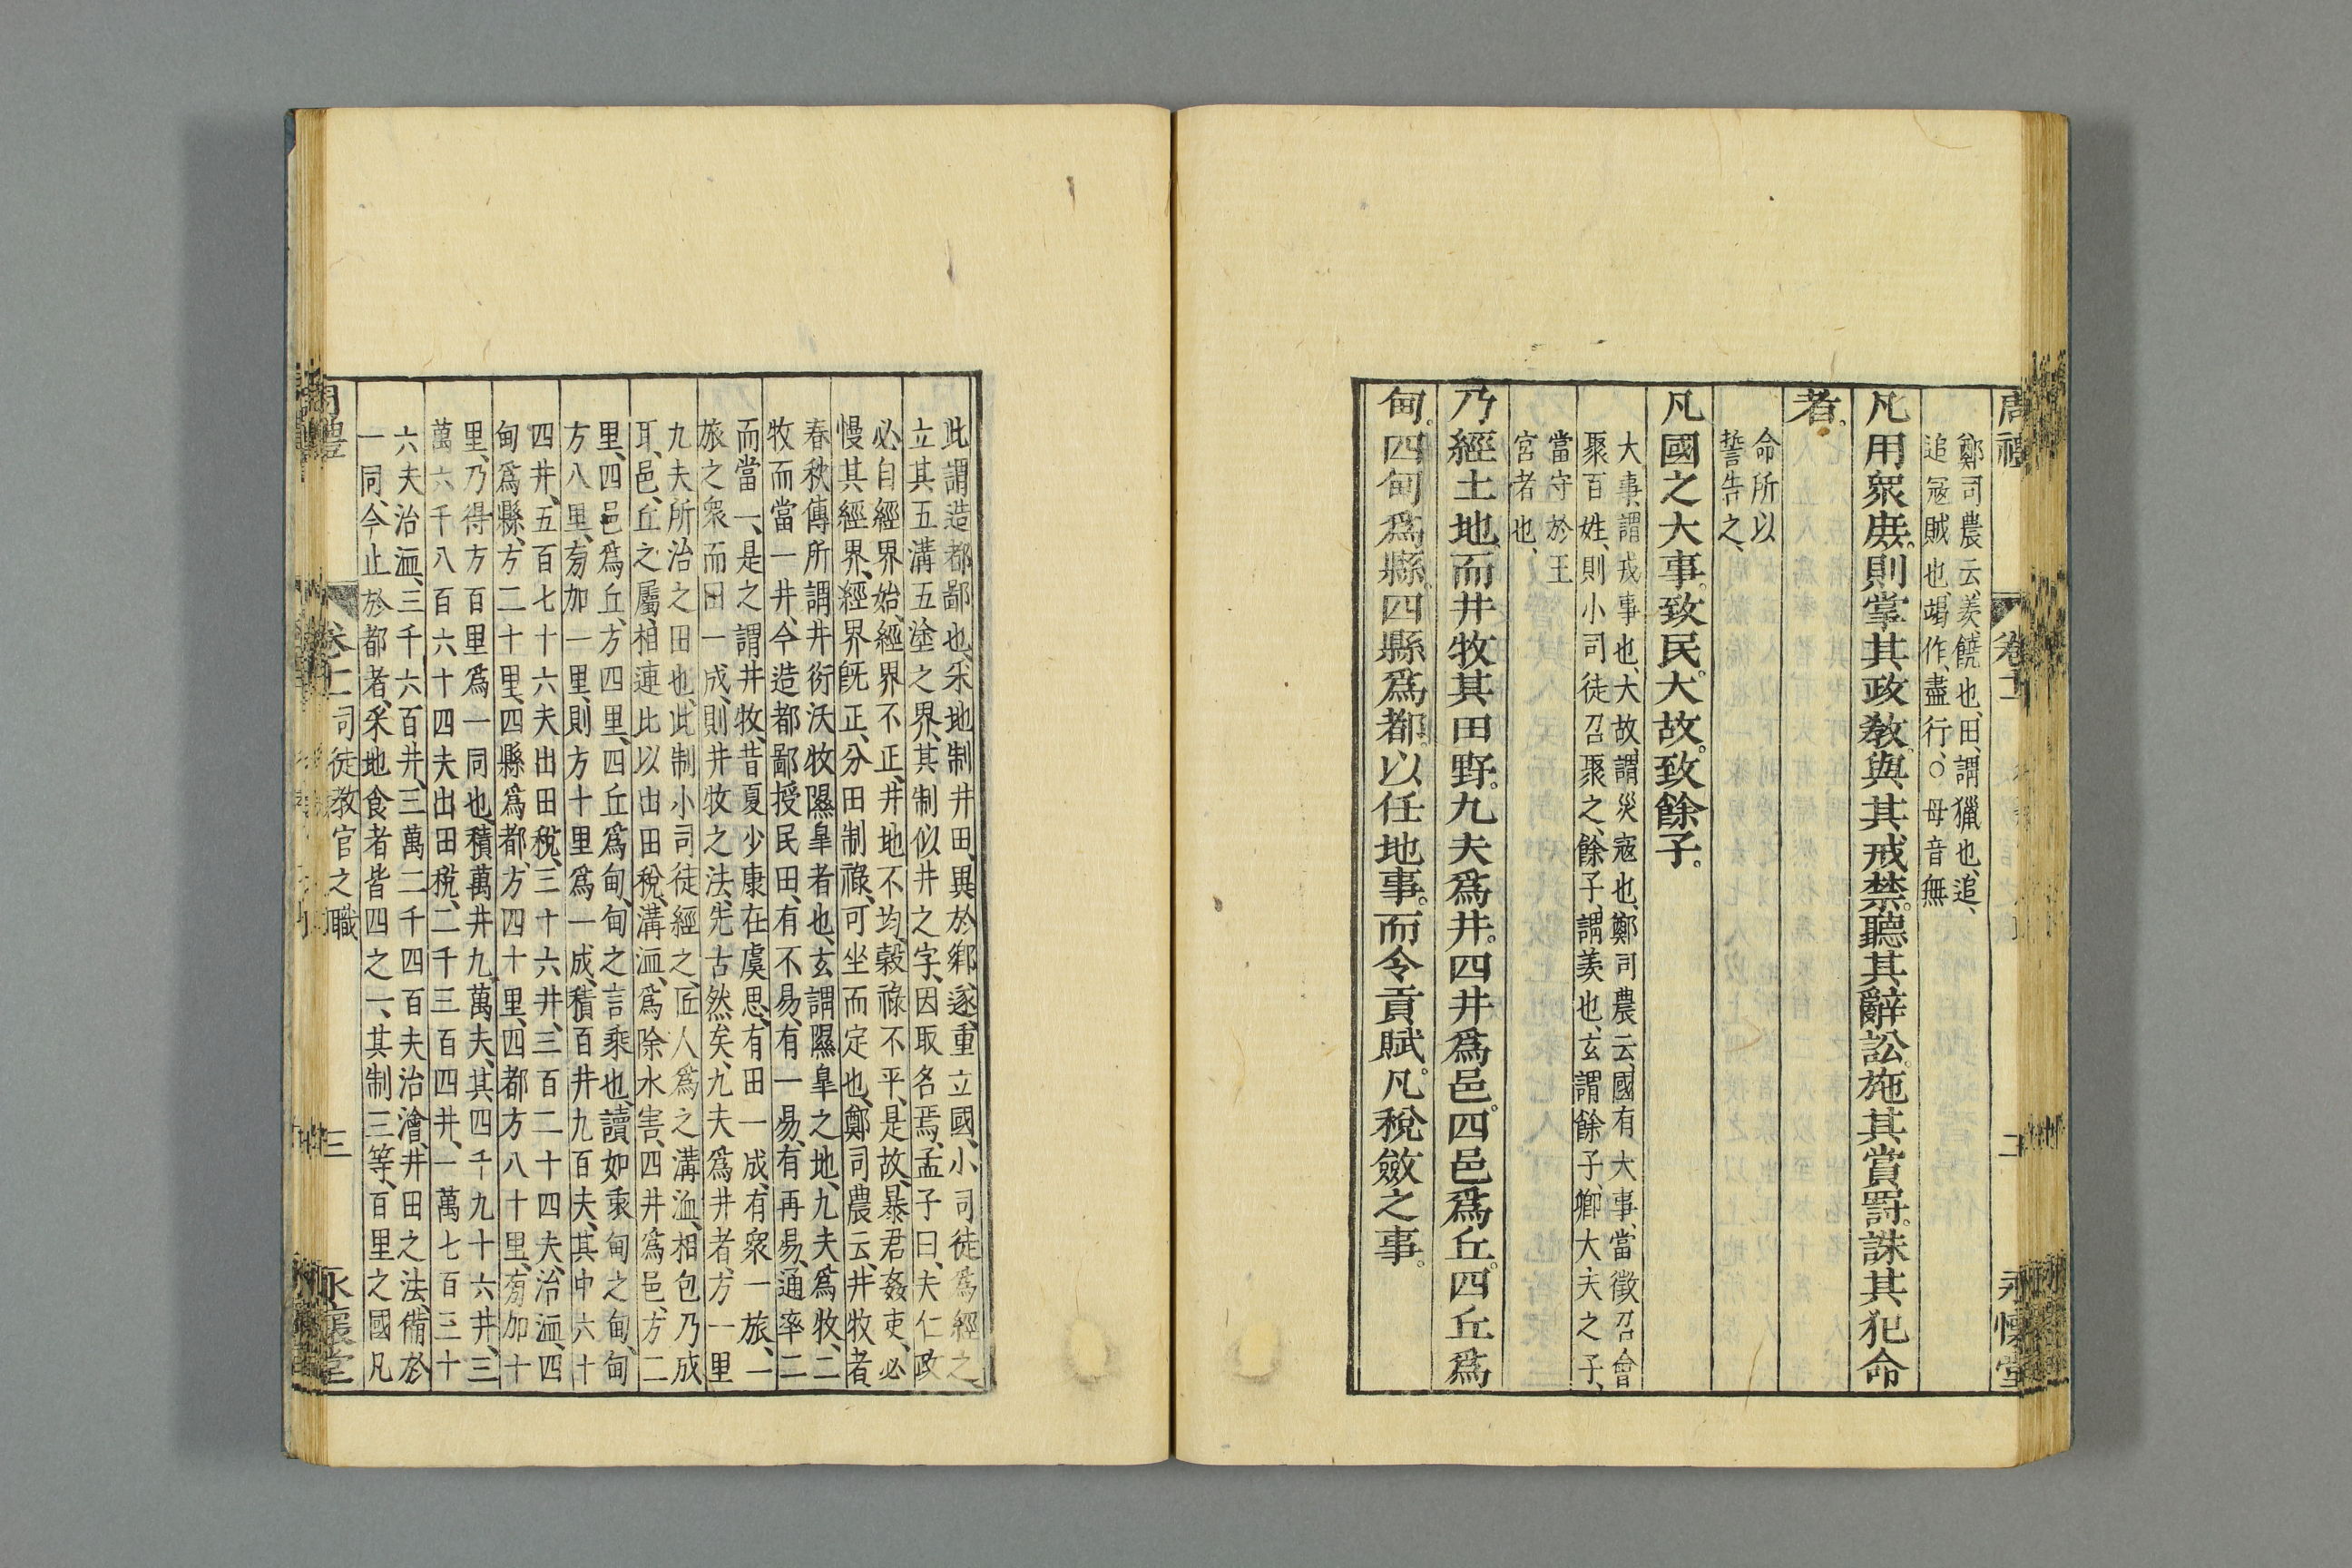 周禮 卷十一 二 永懷堂
鄭司農云、羨、饒也、田、謂獵也、追、
追冦賊也、竭作、盡行、○毋音無
凡用衆庶。則掌其政敎。與其戒禁。聽其辭訟。施其賞罰。誅其犯命
者。
命所以
誓告之、
凡國之大事。致民。大故。致餘子。
大事、謂戎事也、大故、謂災寇也、鄭司農云、國有大事、當徵召會
聚百姓、則小司徒召聚之、餘子、謂羨也、玄謂餘子、卿大夫之子、
當守於王
宮者也、
乃經土地。而井牧其田野。九夫爲井。四井爲邑。四邑爲丘。四丘爲
甸。四甸爲縣。四縣爲都。以任地事。而令貢賦。凡稅斂之事。
此謂造都鄙也、采地制井田、異於鄉、遂、重立國、小司徒爲經之、
立其五溝五塗之界、其制似井之字、因取名焉、孟子曰、夫仁政
必自經界始、經界不正、井地不均、榖祿不平、是故、暴君姦吏、必
慢其經界、經界旣正、分田制祿、可坐而定也、鄭司農云、井牧者
春秋傳所謂井衍沃牧隰皐者也、玄謂隰皐之地、九夫爲牧、二
牧而當一井、今造都鄙授民田、有不易、有一易、有再易、通率二
而當一、是之謂井牧、昔夏少康在虞思、有田一成、有衆一旅、一
旅之衆而田一成、則井牧之法、先古然矣、九夫爲井者、方一里
九夫所治之田也、此制小司徒經之、匠人爲之溝洫、相包乃成
耳、邑、丘之屬、相連比以出田稅、溝洫、爲除水害、四井爲邑、方二
里、四邑爲丘、方四里、四丘爲甸、甸之言乘也、讀如乘甸之甸、甸
方八里、旁加一里、則方十里爲一成、積百井、九百夫、其中六十
四井、五百七十六夫出田稅、三十六井、三百二十四夫、治洫、四
甸爲縣、方二十里、四縣爲都、方四十里、四都方八十里、旁加十
里、乃得方百里爲一同也、積萬井九、萬夫、其四千九十六井、三
萬六千八百六十四夫出田稅、二千三百四井、一萬七百三十
六夫治洫、三千六百井、三萬二千四百夫治澮、井田之法、備於
一同、今止於都者、采地食者皆四之一、其制三等、百里之國凡
周禮 卷十一 司徒教官之職 三 永懷堂